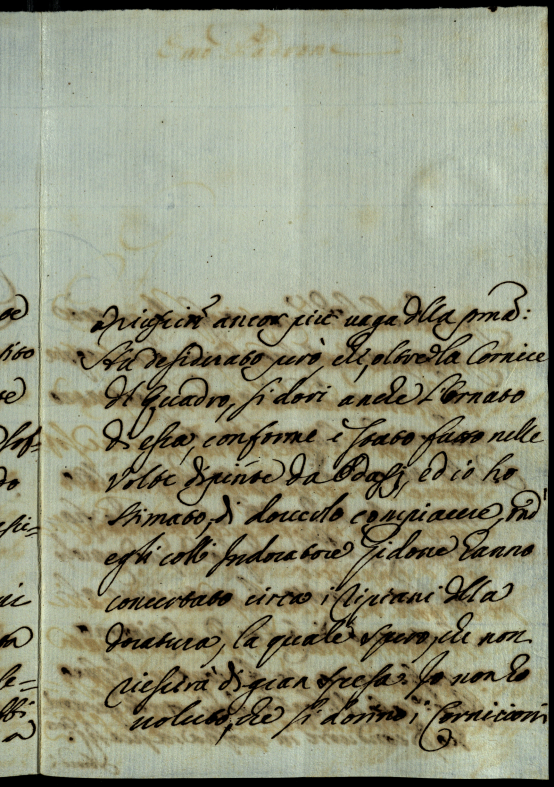 riuscire ancor più vaga dlla pma:
Ha desiderato però, che, oltre dla Cornice
dl Quadro, si dori anche l'Ornato
di essa, conforme è stato fatto nelle
Volte dipinte da Odazj, ed io ho
stimato, di doverlo compiacere, ond'
egli coll' Indoratore Gidone hanno
concertato circa i Ripiani dlla
doratura, la quale spero, che non
riescirà di gran spesa. Io non ho
voluto, che si dorino i Cornicioni